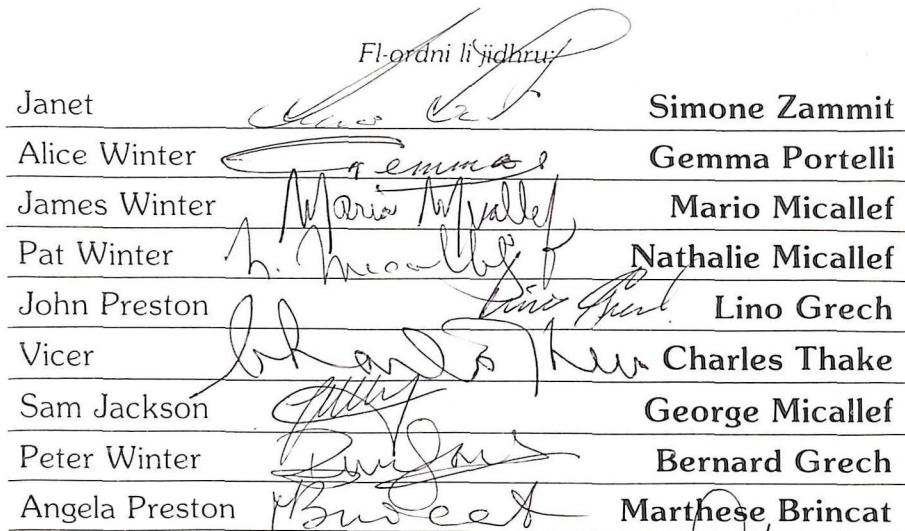 Fl-ordni li jidhru:
Janet Simone Zammit
Alice Winter Gemma Gemma Portelli
James Winter Mario Micallef Mario Micallef
Pat Winter N. Micallef Nathalie Micallef
John Preston Lino Grech Lino Grech
Vicer Charles Thake Charles Thake
Sam Jackson George Micallef
Peter Winter Bernard Grech
Angela Preston MBrincat Marthese Brincat